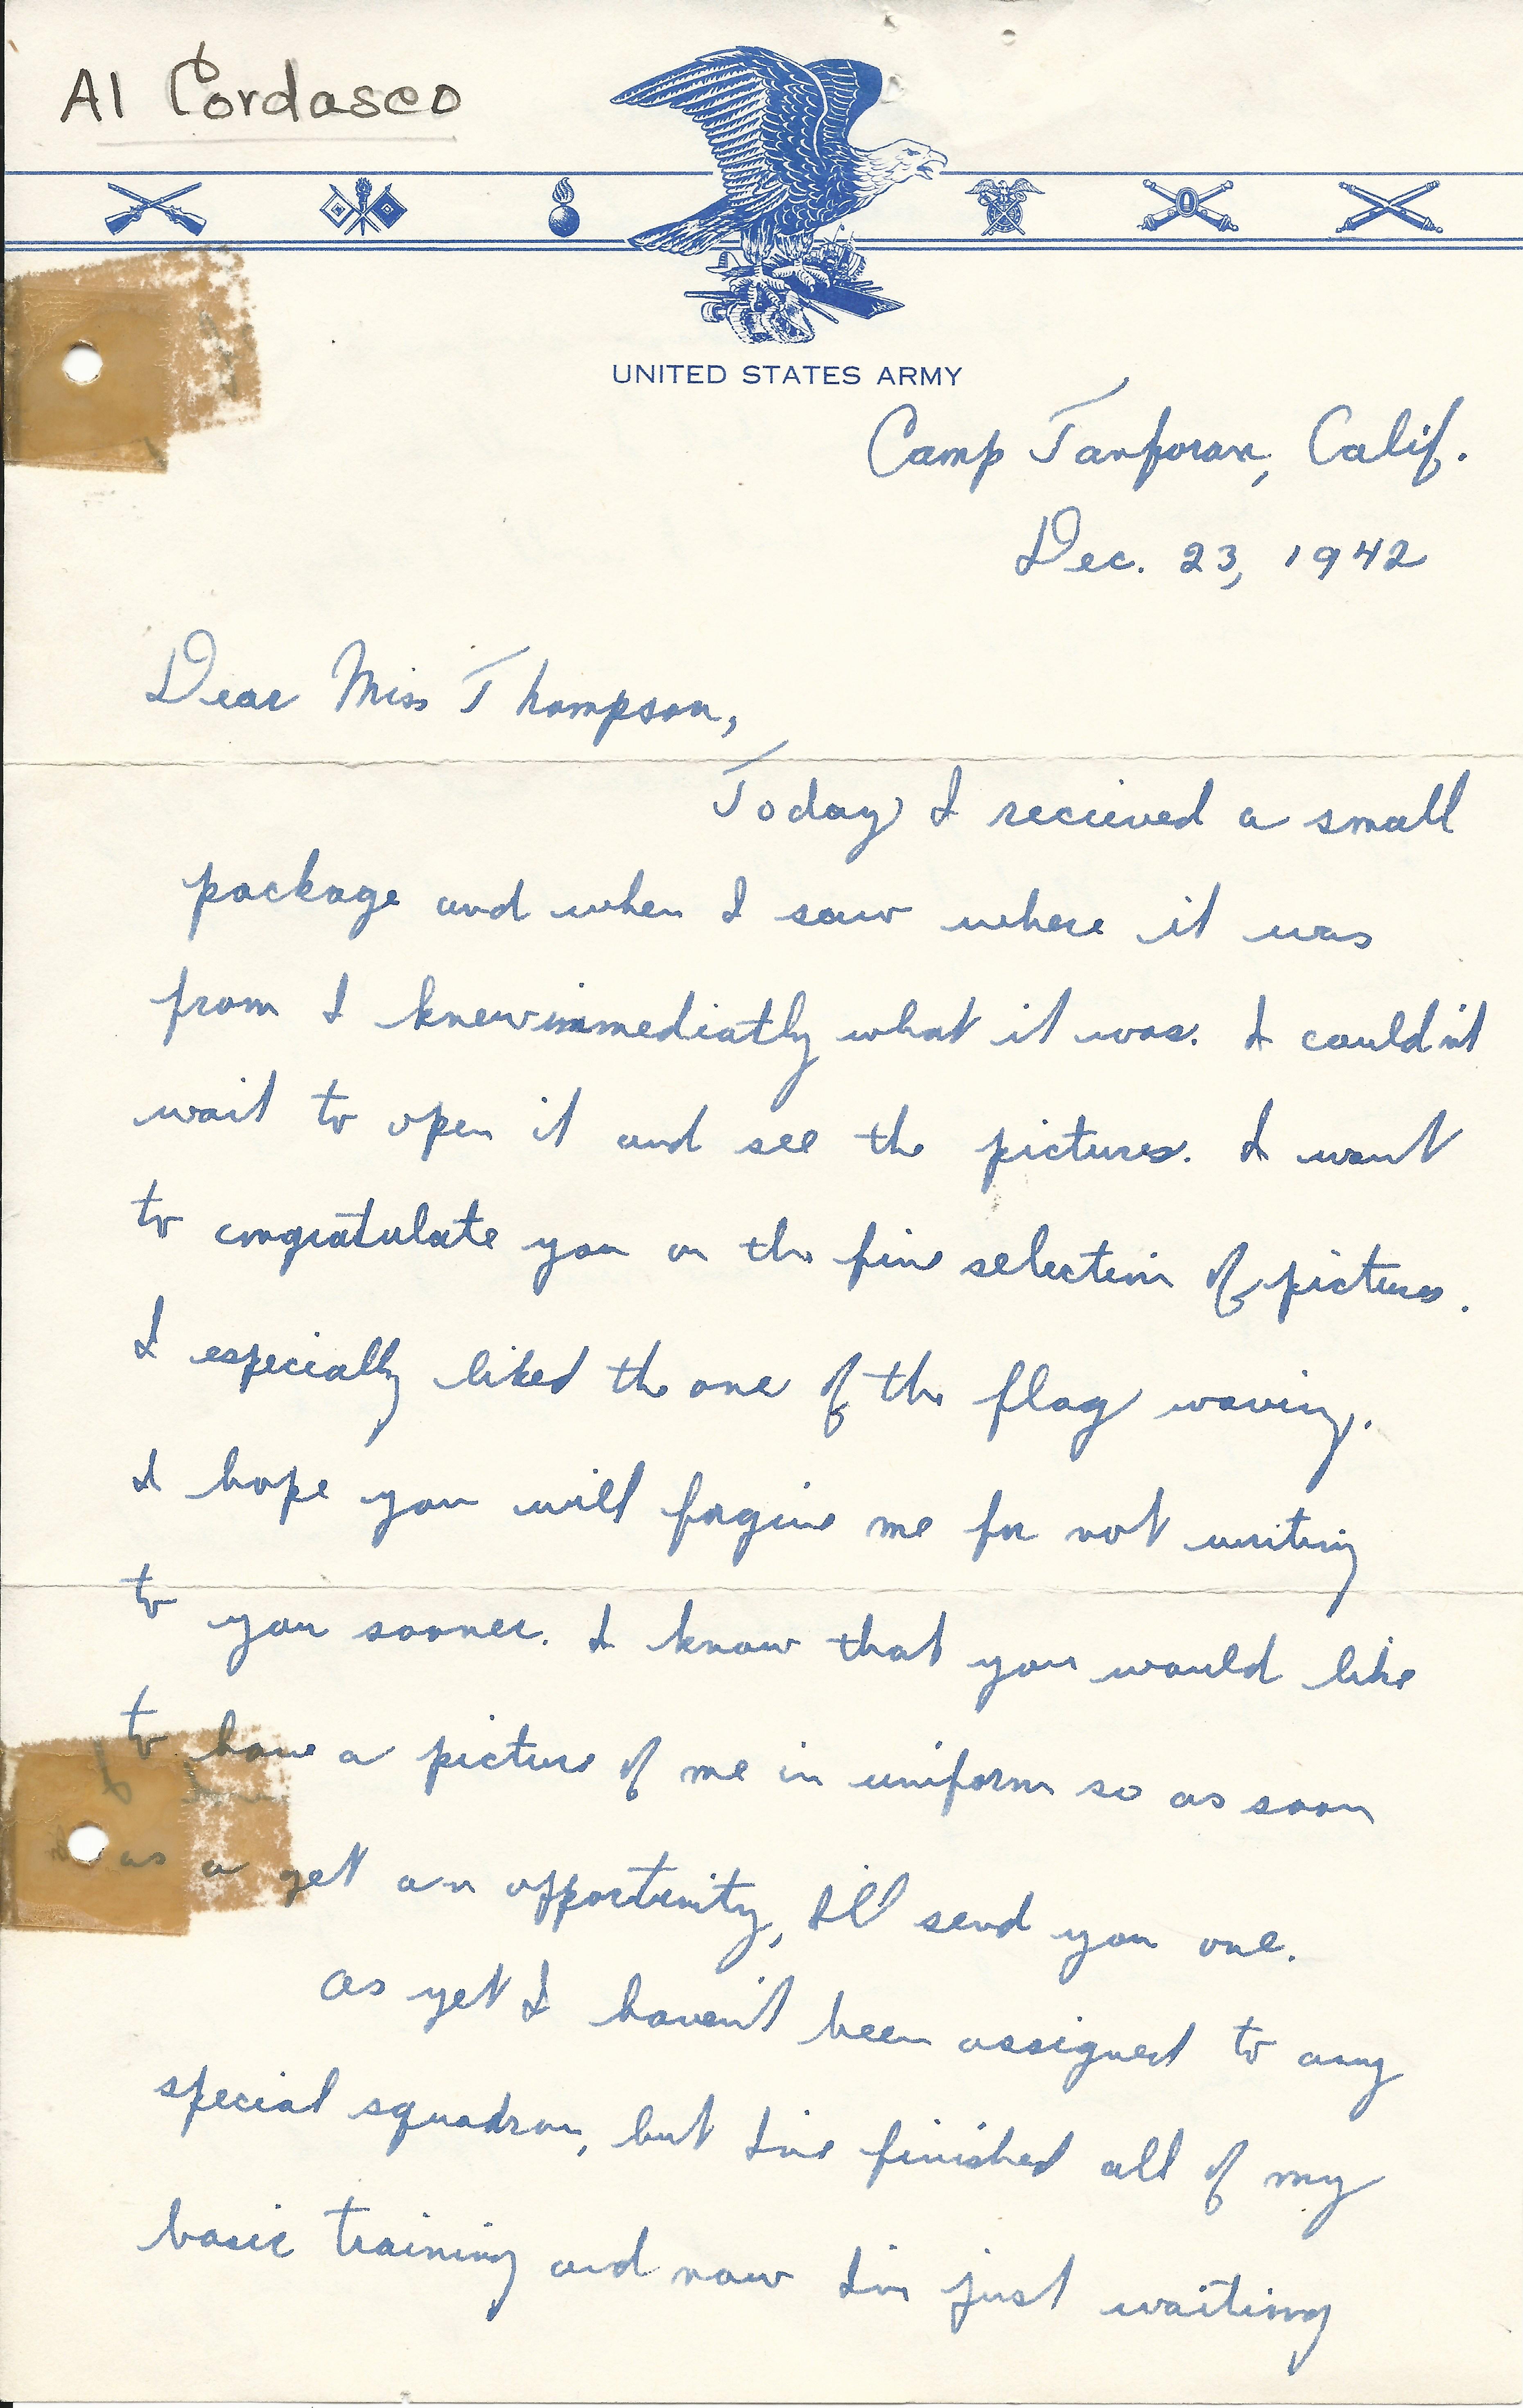 Al Cordasco
UNITED STATES ARMY
Camp Tanforan, Calif.
Dec. 23, 1942
Dear Miss Thompson,
Today I recieved a small
package and when I saw where it was
from I knew immediatly what it was. I couldn't
wait to open it and see the pictures. I want
to congratulate you on the fine selection of pictures.
I especially liked the one of the flag waving.
I hope you will forgive me for not writing
to you sooner. I know that you would like
to have a picture of me in uniform so as soon
as a get an opportunity, I'll send you one.
As yet I haven't been assigned to any
special squadron, but I've finished all of my
basic training and now I'm just waiting